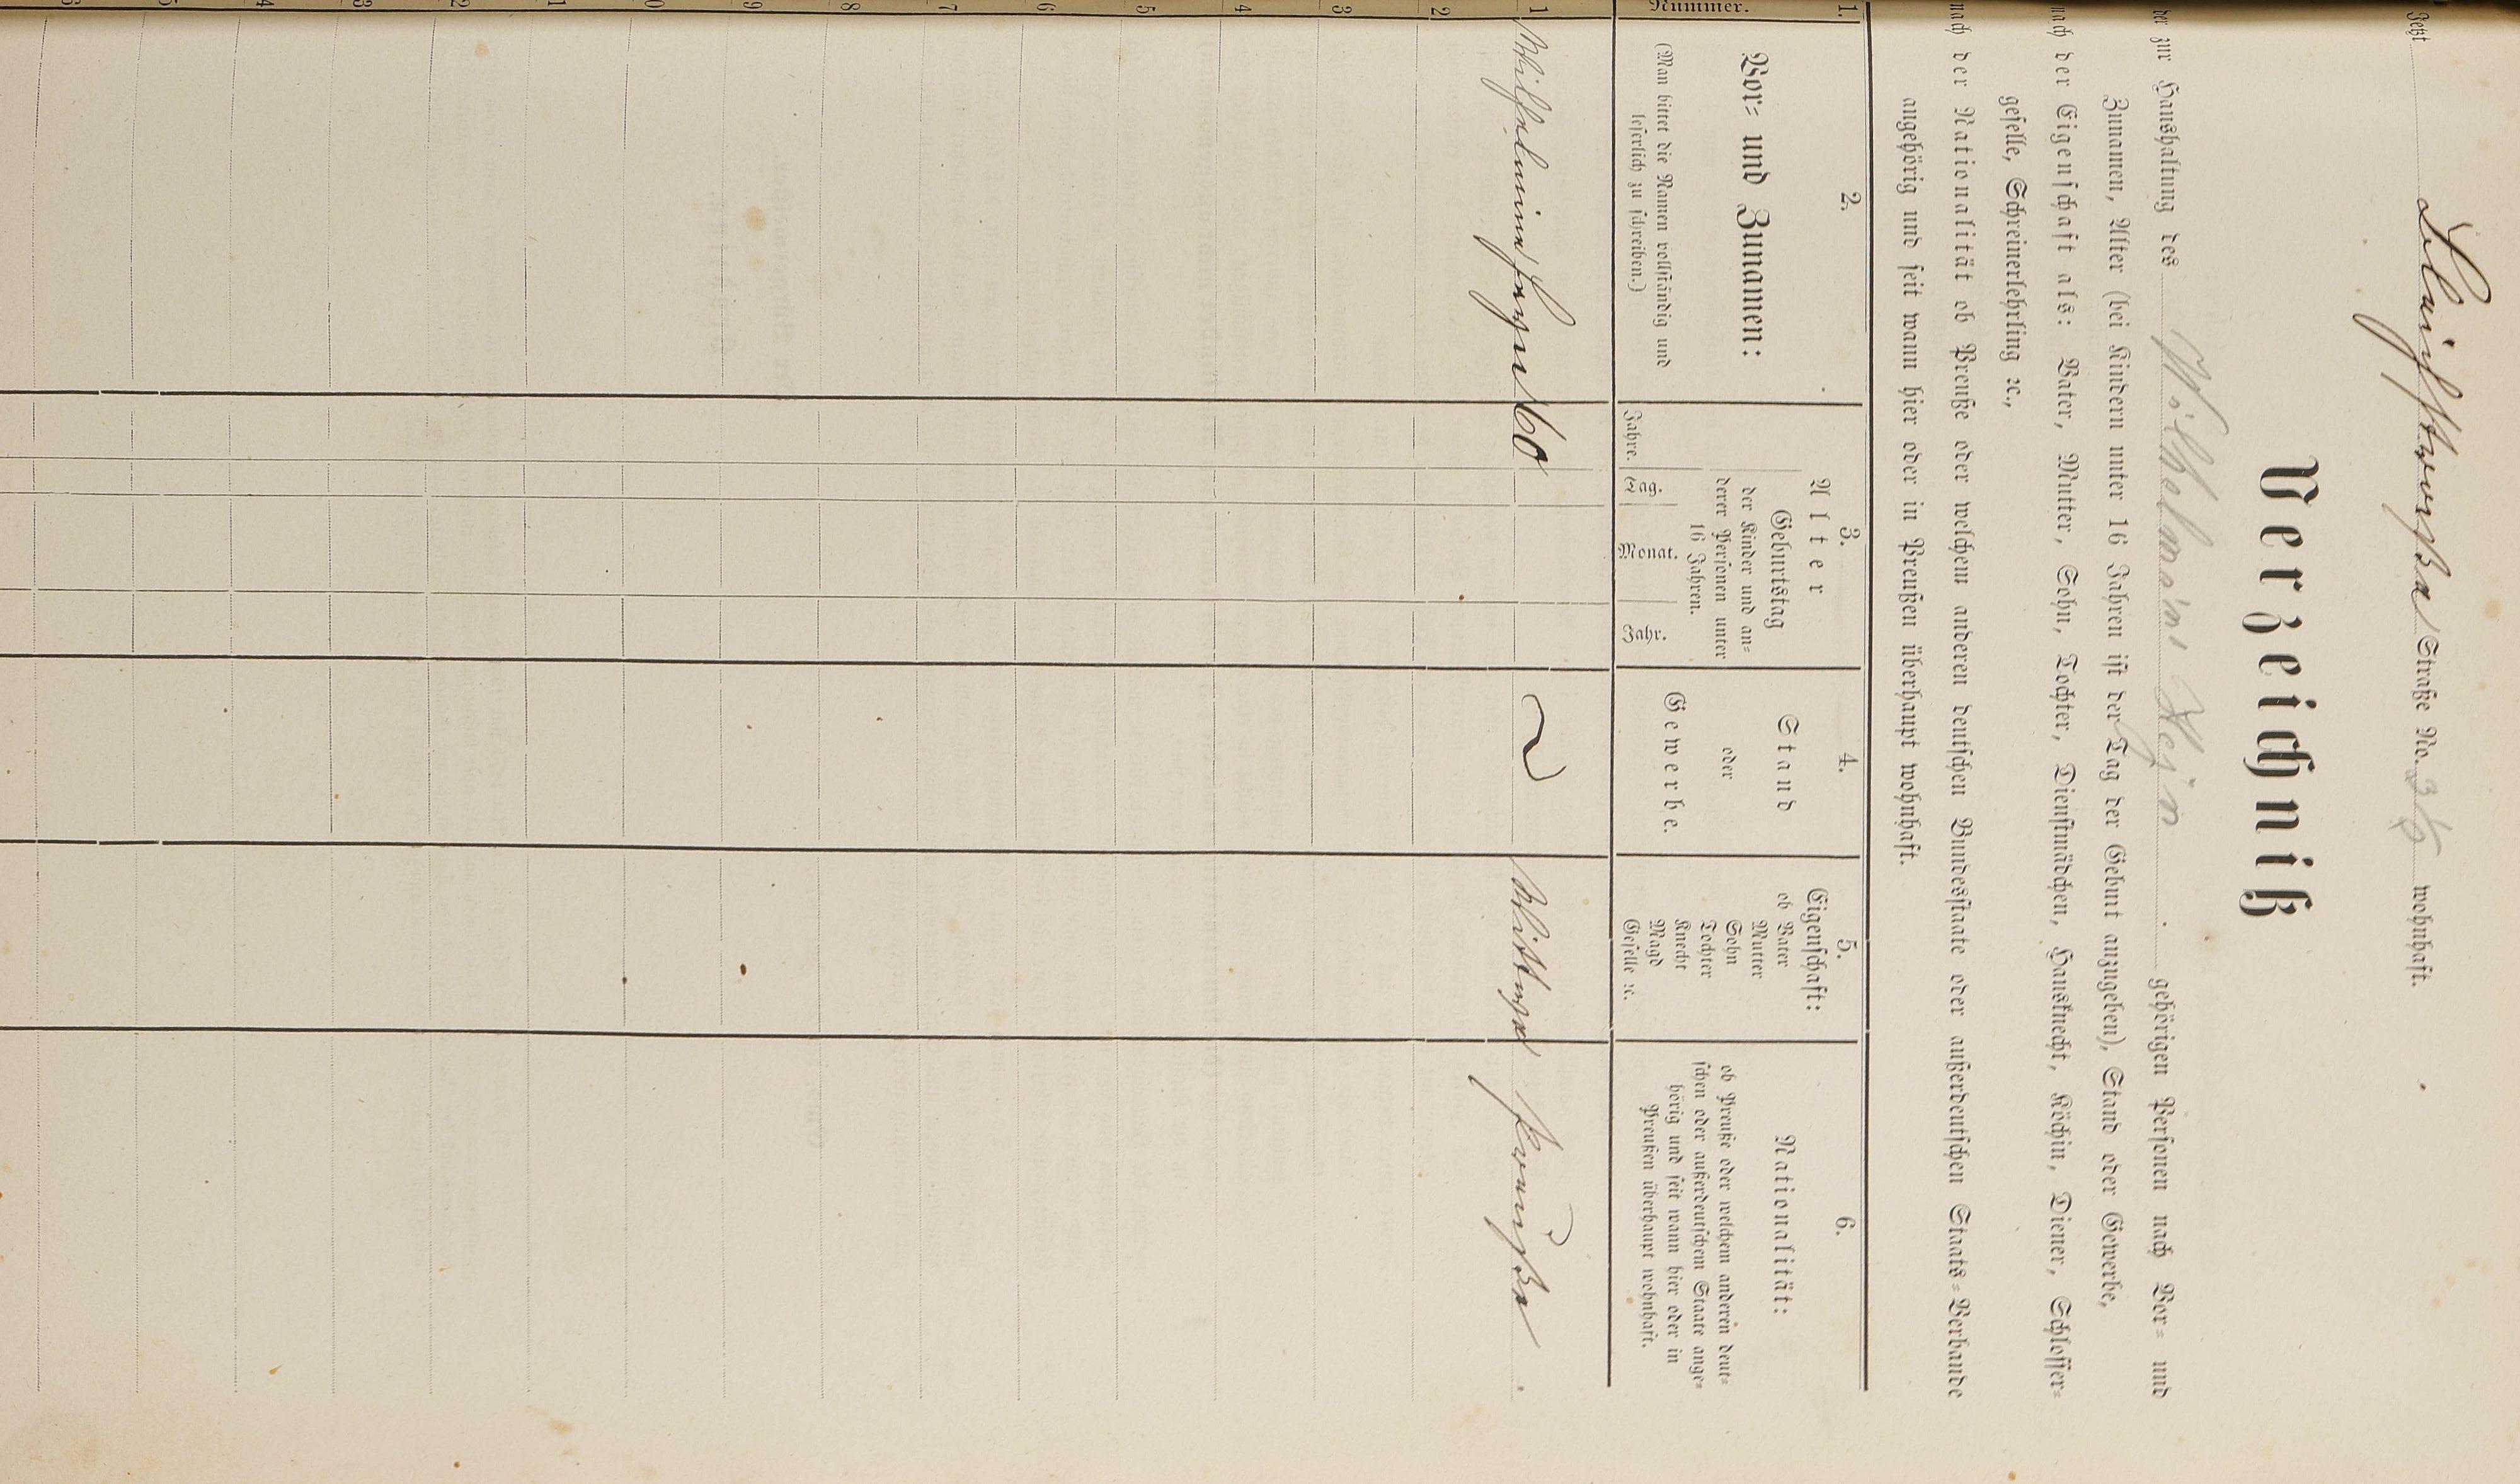 Jetzt Bleichstraße Straße No. 36 wohnhaft.
Verzeichniß
der zur Haushaltung des Wilhelmine gehörigen Personen nach Vor= und
Zunamen, Alter (bei Kindern unter 16 Jahren ist der Tag der Geburt anzugeben), Stand oder Gewerbe,
nach der Eigenschaft als: Vater, Mutter, Sohn, Tochter, Dienstmädchen, Hausknecht, Köchin, Diener, Schlosser=
geselle, Schreinerlehrling ꝛc.,
nach der Nationalität ob Preuße oder welchem anderen deutschen Bundesstaate oder außerdeutschen Staats=Verbande
angehörig und seit wann hier oder in Preußen überhaupt wohnhaft.
1.
Nummer.
2.
Vor= und Zunamen:
(Man bittet die Namen vollständig und
leserlich zu schreiben.)
3.
Alter
Geburtstag
der Kinder und an=
derer Personen unter
16 Jahren.
Jahre.
Tag.
Monat.
Jahr.
4.
Stand
oder
Gewerbe.
5.
Eigenschaft:
ob Vater
Mutter
Sohn
Tochter
Knecht
Magd
Geselle ꝛc.
6.
Nationalität:
ob Preuße oder welchem anderen deut=
schen oder außerdeutschem Staate ange=
hörig und seit wann hier oder in
Preußen überhaupt wohnhaft.
1 Wilhelmine 60 Wittwe Preuße
2
3
4
5
6
7
8
9
0
1
2
3
4
5
6